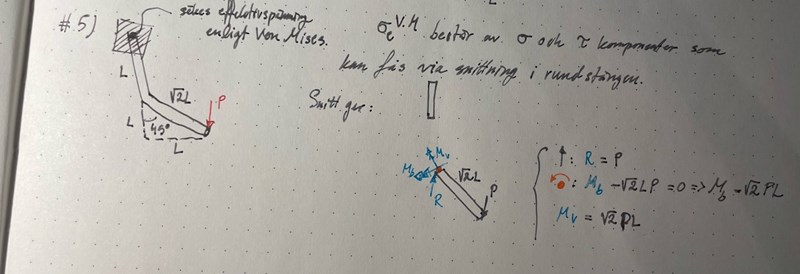 #5)
sökes effektivspänning
enligt Von Mises.
σₑ^V.M består av σ och τ komponenter som
kan fås via snittning i rundstången.
L
√2L
P
L
45°
L
Snitt ger:
M_v
M_b
R
√2L
P
↑: R = P
M_b - √2LP = 0 => M_b = √2PL
M_v = √2PL